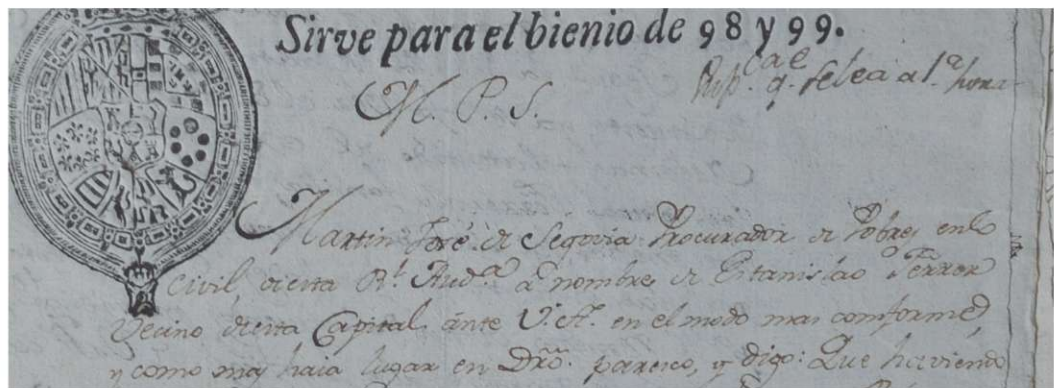 Sirve para el bienio de 98 y 99.
M. P. S.
q. se lea a 1.ª hora
Martin José de Segovia Procurador de Pobres en lo
Civil, de esta Rl. Auda. a nombre de Estanislao Ferrer
Vecino de esta Capital ante V.A. en el modo mas comforme,
y como mas haia lugar en Dro. paresco, y digo: Que haviendo